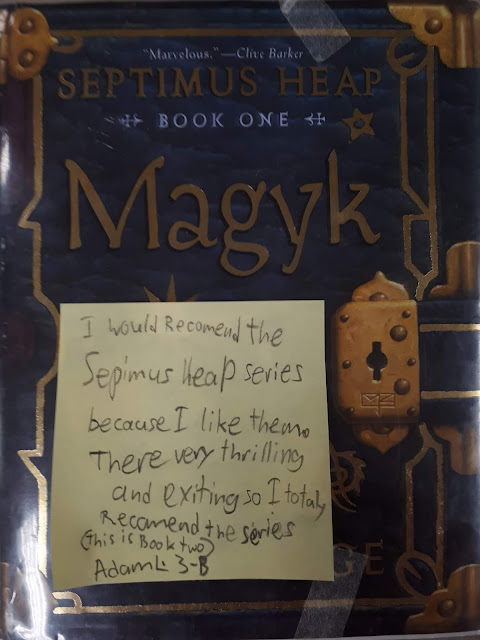 "Marvelous."—Clive Barker
SEPTIMUS HEAP
BOOK ONE
Magyk
I would Recomend the
Sepimus Heap series
because I like them.
There very thrilling
and exiting so I totaly
Recomend the series
(this is Book two)
Adam L. 3-B
GE